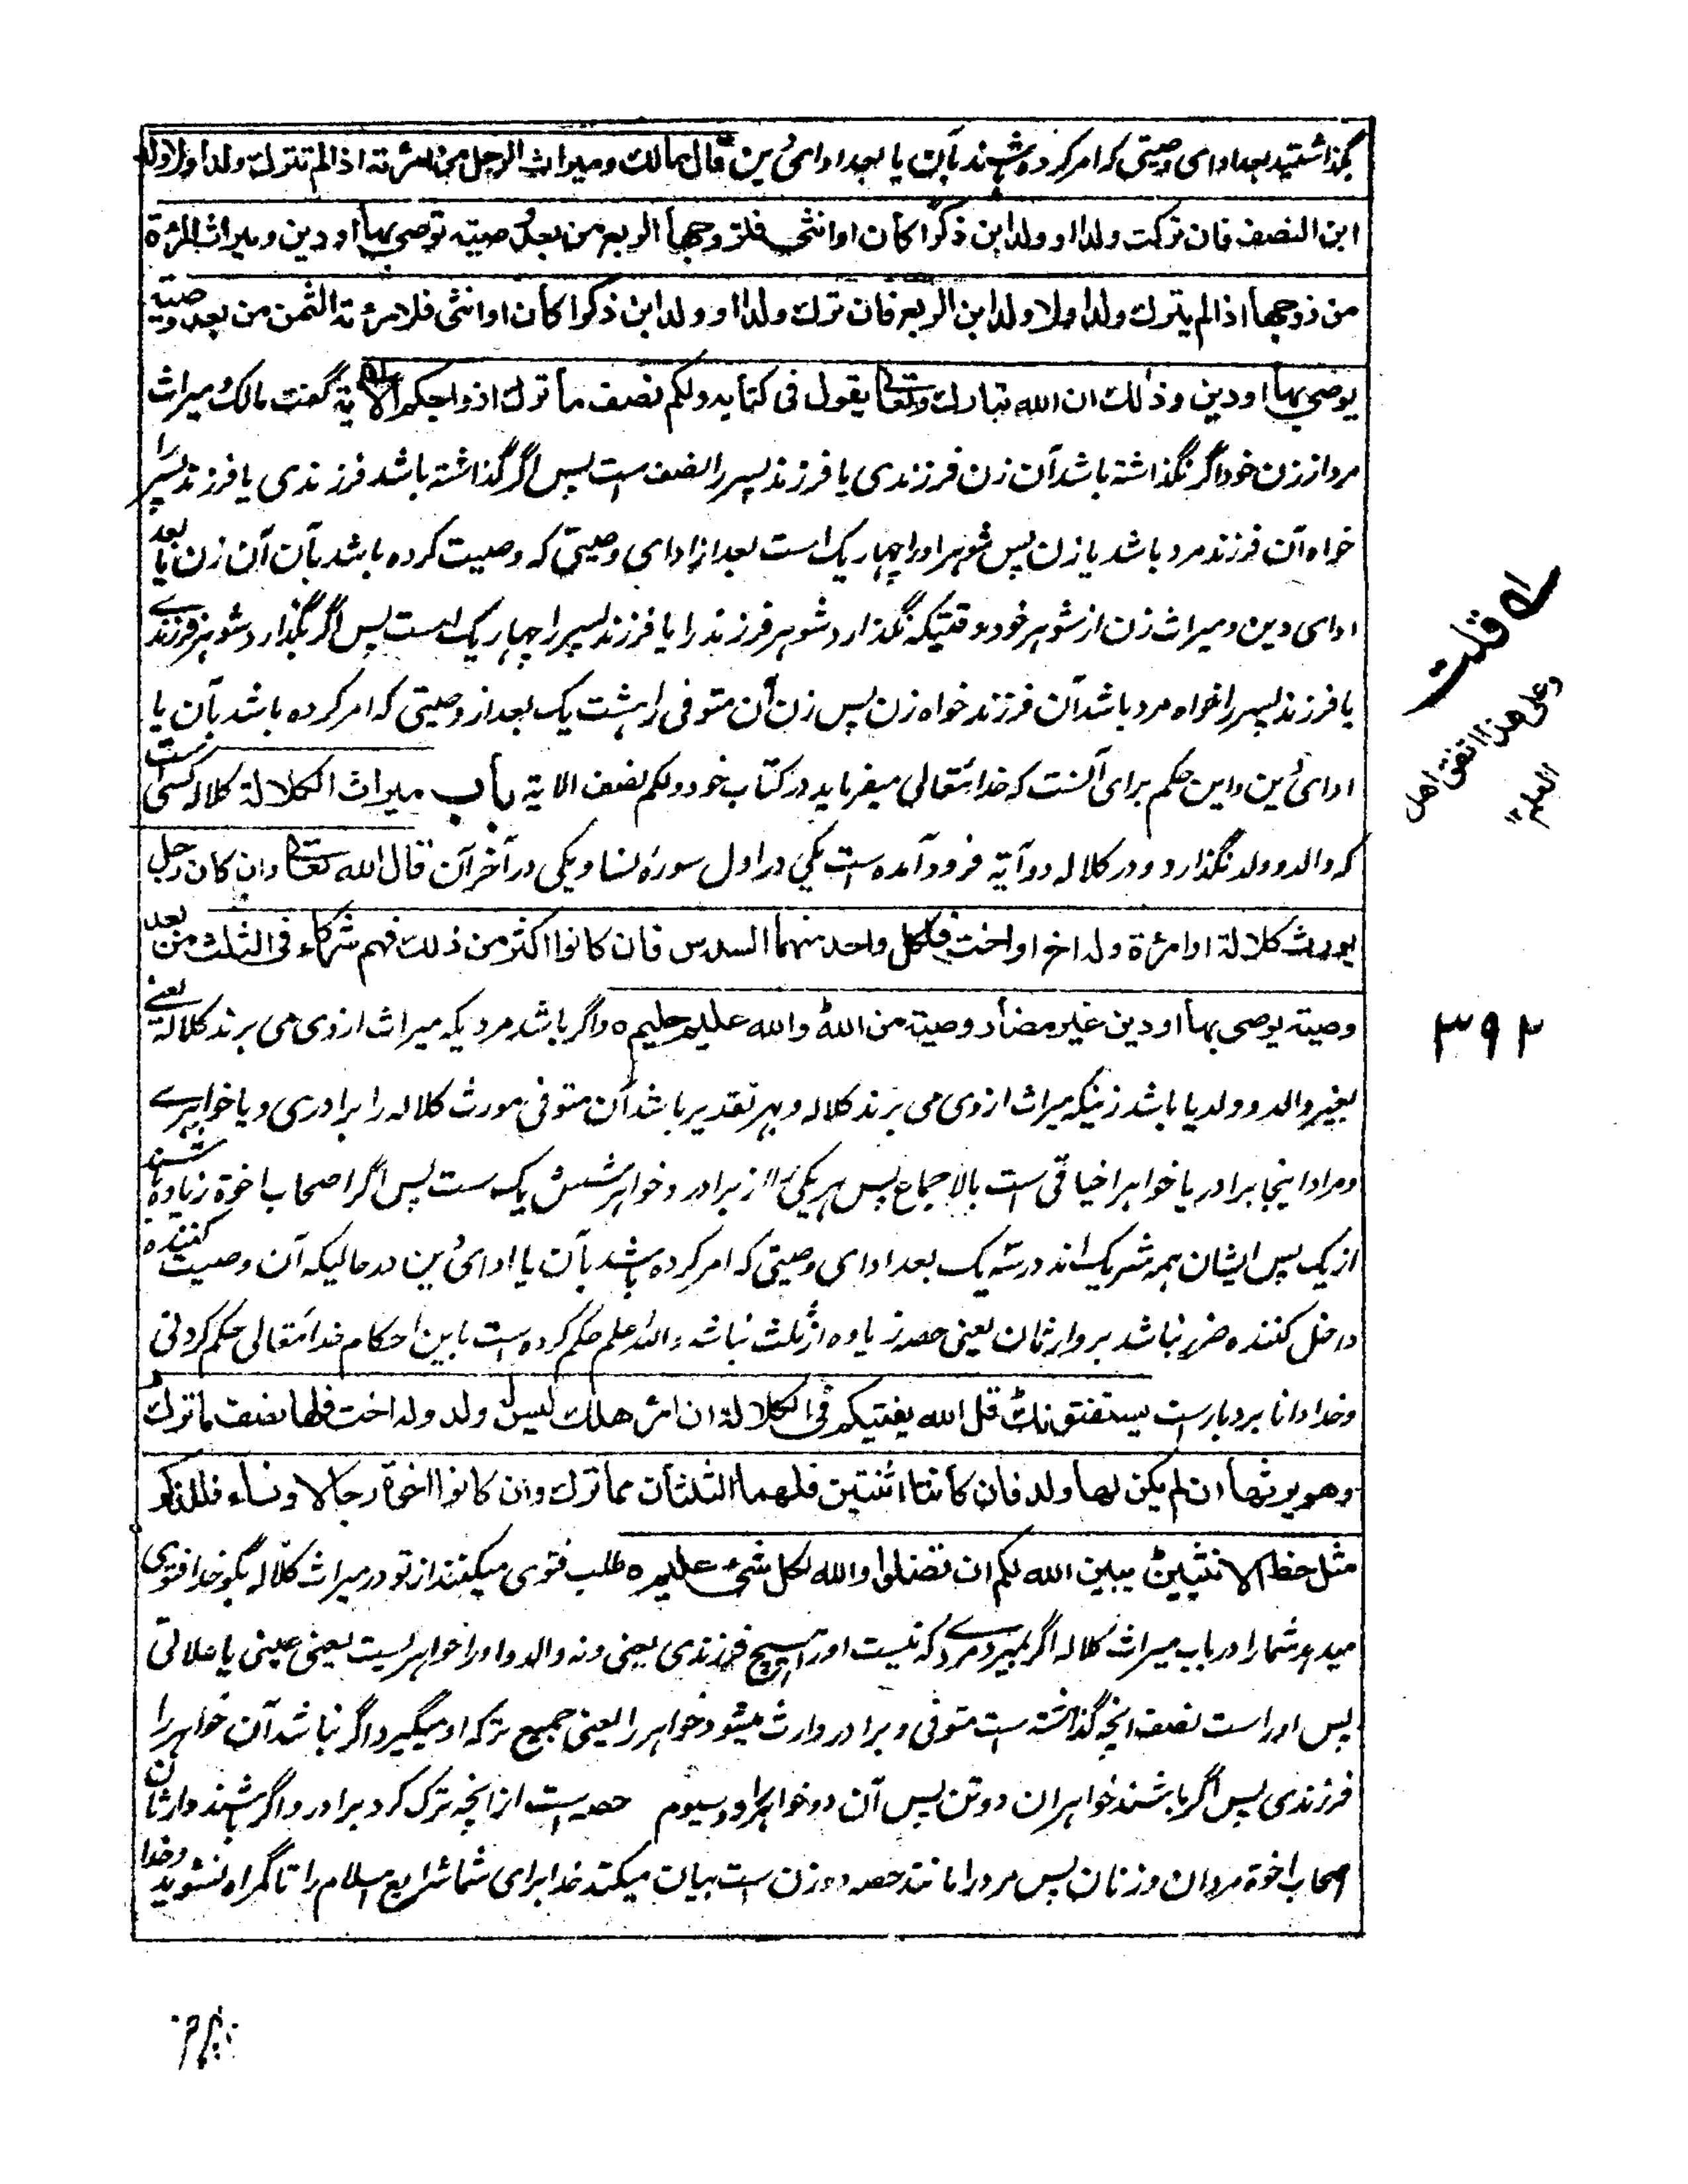 بگذاشتید بعد ادای وصیتی که امر کرده باشند بآن یا بعد ادای دین قال مالك وميراث الرجل من امرأته اذا لم تترك ولدا ولا ولد
ابن النصف فان تركت ولدا او ولد ابن ذكرا كان او انثى فلزوجها الربع من بعد وصية توصي بها او دين وميراث المرأة
من زوجها اذا لم يترك ولدا ولا ولد ابن الربع فان ترك ولدا او ولد ابن ذكرا كان او انثى فلامرأته الثمن من بعد وصية
يوصي بها او دين وذلك ان الله تبارك وتعالى يقول في كتابه ولكم نصف ما ترك ازواجكم الاية گفت مالک و میراث
مرد از زن خود اگر نگذاشته باشد آن زن فرزندی یا فرزند پسر را نصف است پس اگر گذاشته باشد فرزندی یا فرزند پسر را
خواه آن فرزند مرد باشد یا زن پس شوهر او را چهار یک است بعد از ادای وصیتی که وصیت کرده باشد بآن آن زن یا بعد
ادای دین و میراث زن از شوهر خود وقتیکه نگذارد شوهر فرزند را یا فرزند پسر را چهار یک است پس اگر بگذارد شوهر فرزندے
یا فرزند پسر را خواه مرد باشد آن فرزند خواه زن پس زن آن متوفی را هشت یک بعد از وصیتی که امر کرده باشد بآن یا
ادای دین و این حکم برای آنست که خدا تعالی میفرماید در کتاب خود ولکم نصف الایة باب ميراث الكلالة کلاله کسی است
که والد و ولد نگذارد و در کلاله دو آیة فرود آمده است یکی در اول سورۀ نسا و یکی در آخر آن قال الله تعالى وان كان رجل
يورث كلالة او امرأة وله اخ او اخت فلكل واحد منهما السدس فان كانوا اكثر من ذلك فهم شركاء في الثلث من بعد
وصية يوصى بها او دين غير مضار وصية من الله والله عليم حليم ه و اگر باشد مردیکه میراث از وی می برند کلالة یعنے
بغیر والد و ولد یا باشد زنیکه میراث از وی می برند کلاله و بهر تقدیر باشد آن متوفی مورث کلاله را برادری و یا خواهرے
و مراد اینجا برادر یا خواهر اخیافی است بالاجماع پس هر یکی را از برادر و خواهر شش یک ست پس اگر اصحاب اخوة زیاده باشند
از یک پس ایشان همه شریک اند در سه یک بعد ادای وصیتی که امر کرده باشد بآن یا ادای دین در حالیکه آن وصیت کننده
داخل کننده ضرر نباشد بر وارثان یعنی حصه زیاده از ثلث نباشد والله اعلم حکم کرده است باین احکام خدا تعالی حکم کردنی
و خدا دانا بردبار ست يستفتونك قل الله يفتيكم في الكلالة ان امرؤ هلك ليس له ولد وله اخت فلها نصف ما ترك
وهو يرثها ان لم يكن لها ولد فان كانتا اثنتين فلهما الثلثان مما ترك وان كانوا اخوة رجالا ونساء فللذكر
مثل حظ الانثيين يبين الله لكم ان تضلوا والله بكل شيء عليم ه طلب فتوی میکنند از تو در میراث کلاله بگو خدا فتوی
میدهد شما را در باب میراث کلاله اگر بمیرد مردے که نیست او را هیچ فرزندی یعنی و نه والد و او را خواهریست یعنی عینی یا علاتی
پس او راست نصف انچه گذاشته ست متوفی و برادر وارث میشود خواهر را یعنی جمیع ترکه او میگیرد اگر نباشد آن خواهر را
فرزندی پس اگر باشند خواهران دو تن پس آن دو خواهر را دو سیوم حصه است از انچه ترک کرد برادر و اگر باشند وارثان
اصحاب اخوة مردان و زنان پس مرد را مانند حصه دو زن است بیان میکند خدا برای شما شرایع اسلام را تا گمراه نشوید و خدا
قلت
وعلى هذا اتفق اهل
العلم
۳۹۲